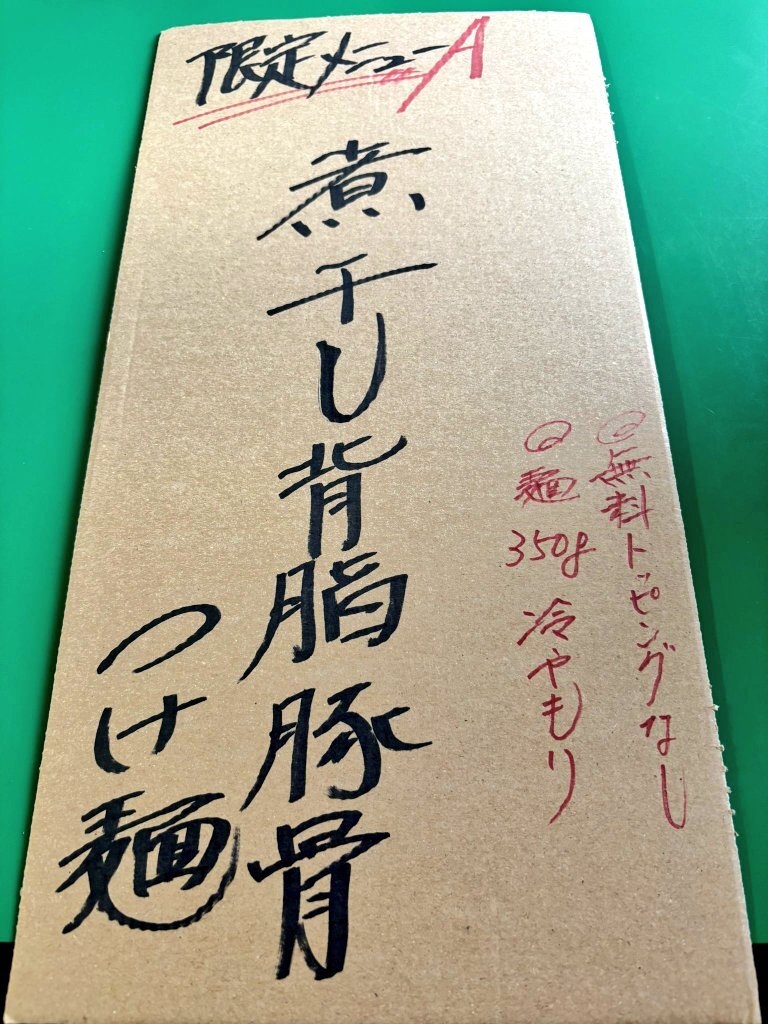 限定メニューA
◎無料トッピングなし
◎麺350g 冷やもり
煮干し背脂豚骨
つけ麺